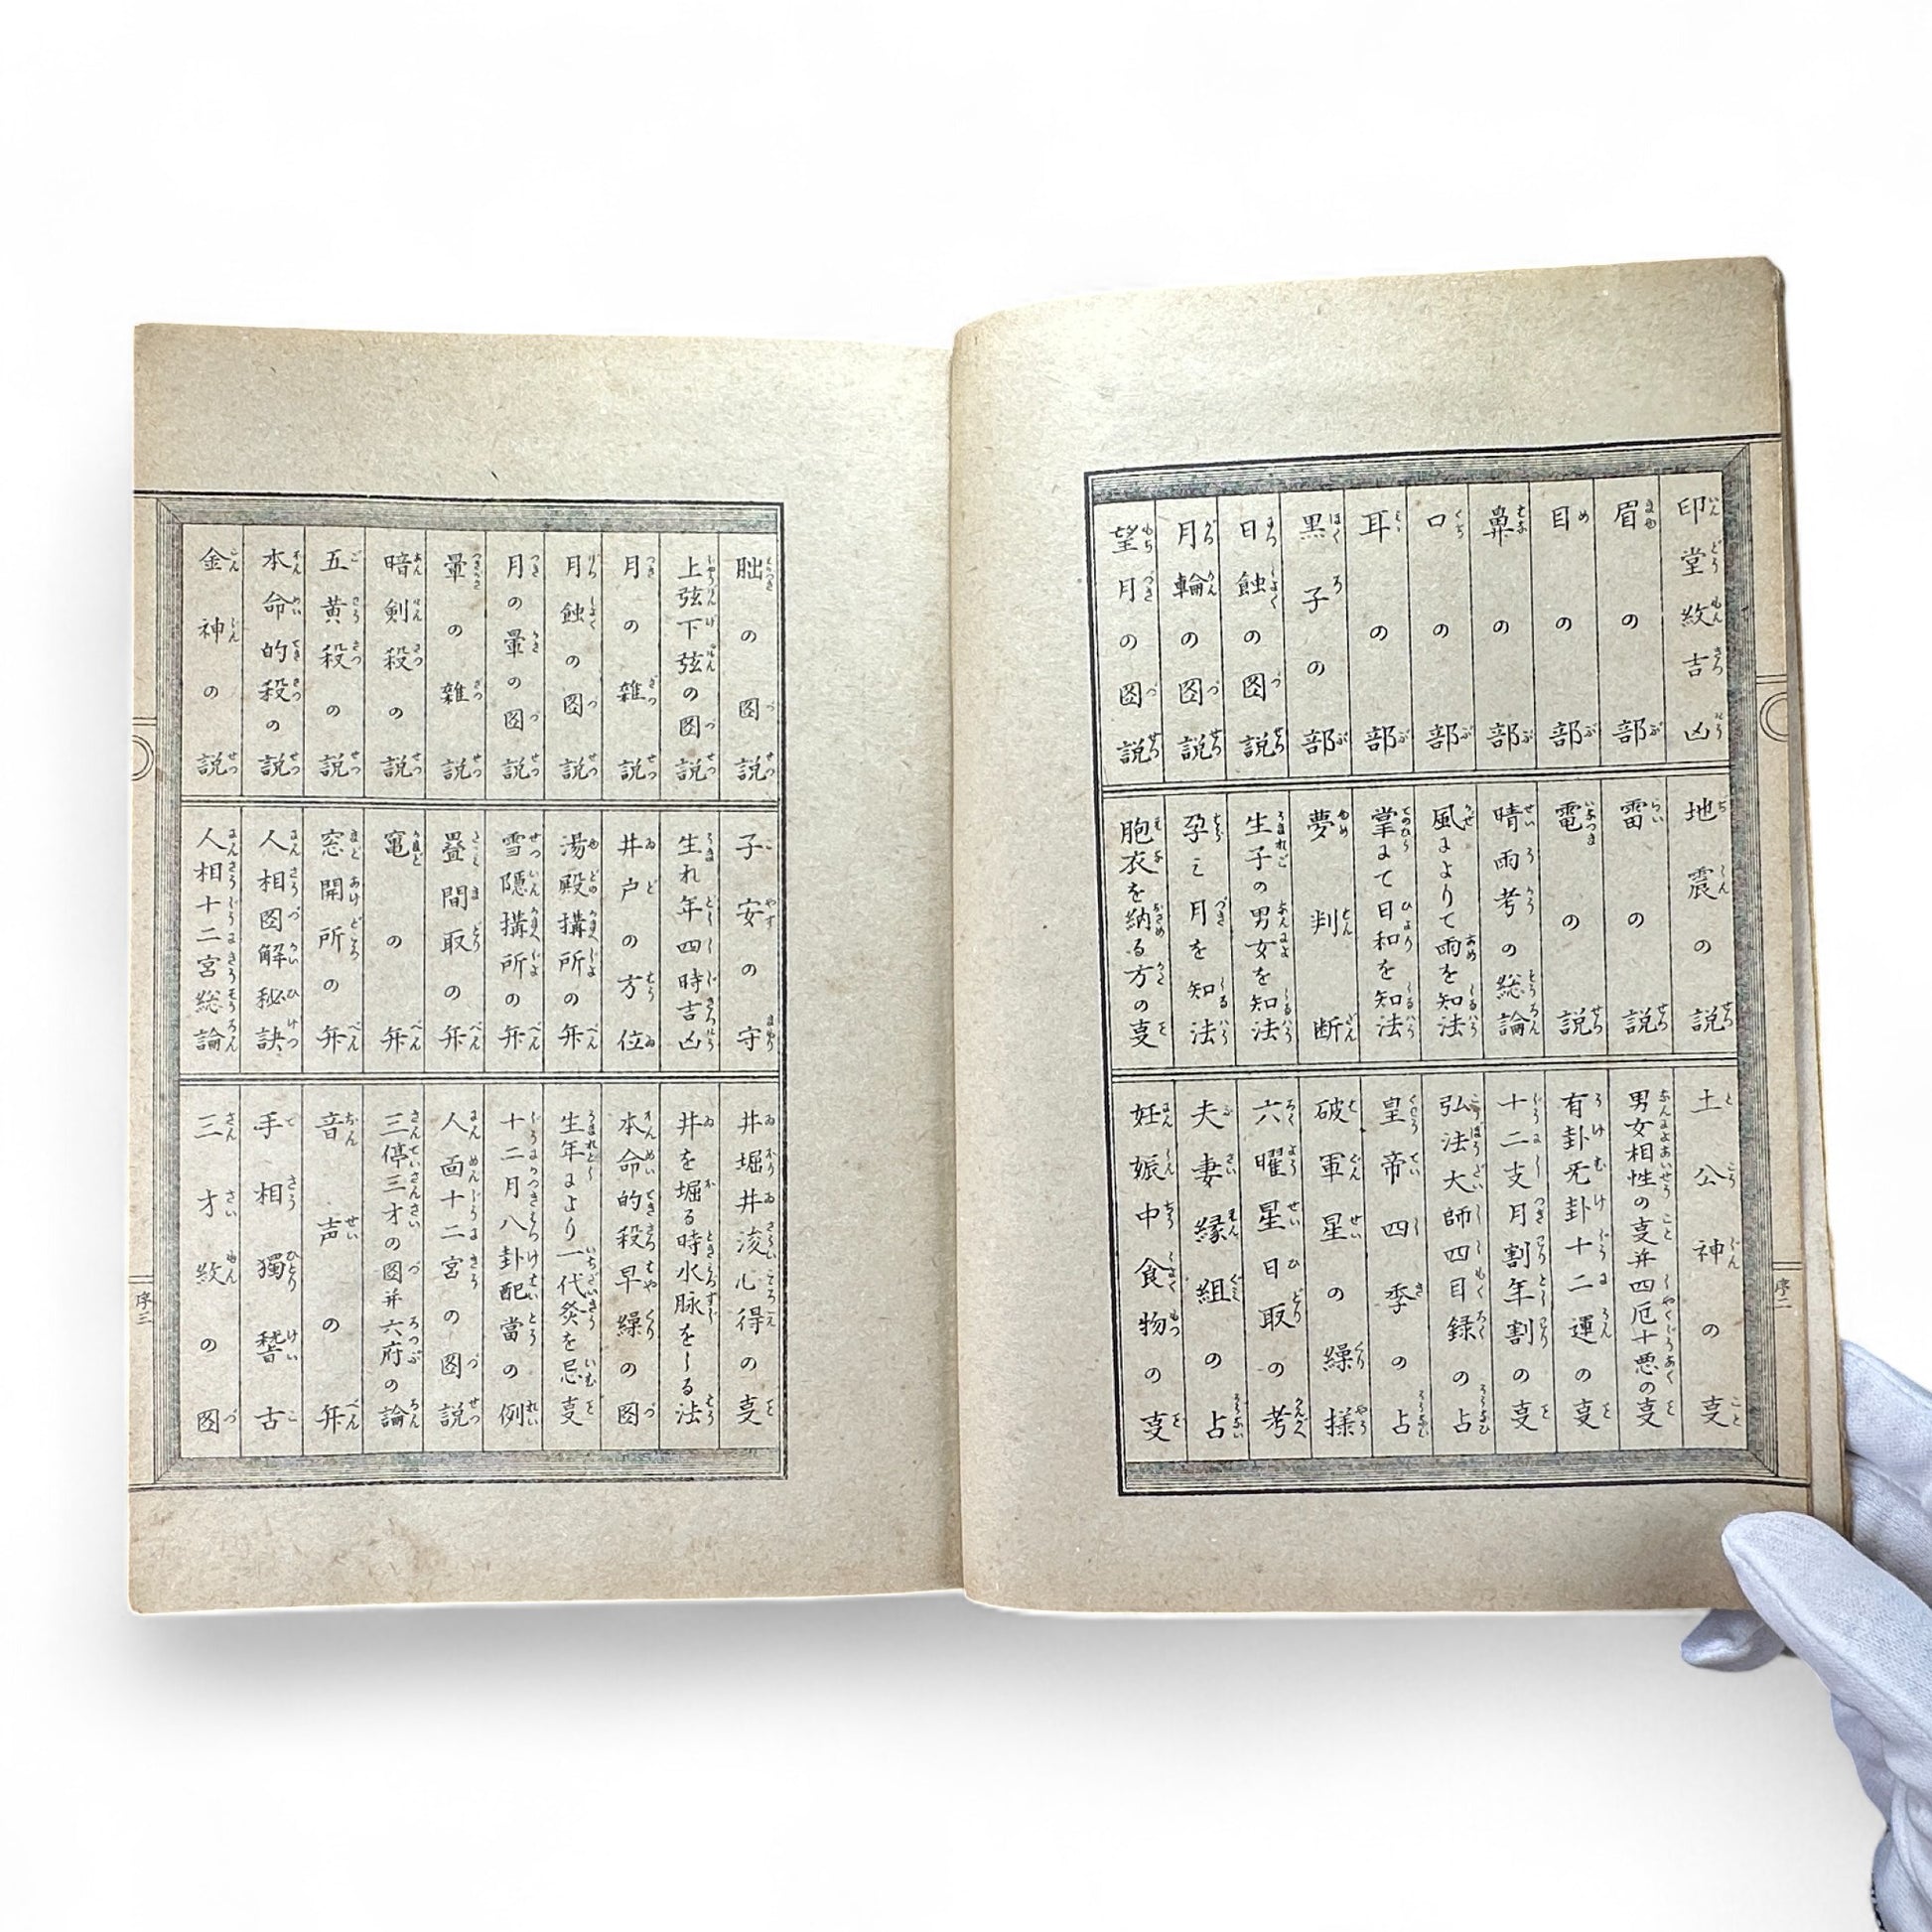 印堂紋吉凶
眉の部
目の部
鼻の部
口の部
耳の部
黒子の部
日蝕の図説
月輪の図説
望月の図説
地震の説
雷の説
電の説
晴雨考の総論
風によりて雨を知法
掌にて日和を知法
夢判断
生子の男女を知法
孕に月を知法
胞衣を納る方の㕝
土公神の㕝
男女相性の㕝并四厄十悪の㕝
有卦旡卦十二運の㕝
十二支月割年割の㕝
弘法大師四目録の占
皇帝四季の占
破軍星の繰様
六曜星日取の考
夫妻縁組の占
妊娠中食物の㕝
序二
朏の図説
上弦下弦の図説
月の雑説
月蝕の図説
月の暈の図説
暈の雑説
暗剣殺の説
五黄殺の説
本命的殺の説
金神の説
子安の守
生れ年四時吉凶
井戸の方位
湯殿搆所の弁
雪隠搆所の弁
畳間取の弁
竈の弁
窓開所の弁
人相図解秘訣
人相十二宮総論
井堀井浚心得の㕝
井を堀る時水脉をしる法
本命的殺早繰の図
生年により一代灸を忌㕝
十二月八卦配當の例
人面十二宮の図説
三停三才の図并六府の論
音声の弁
手相獨稽古
三才紋の図
序三